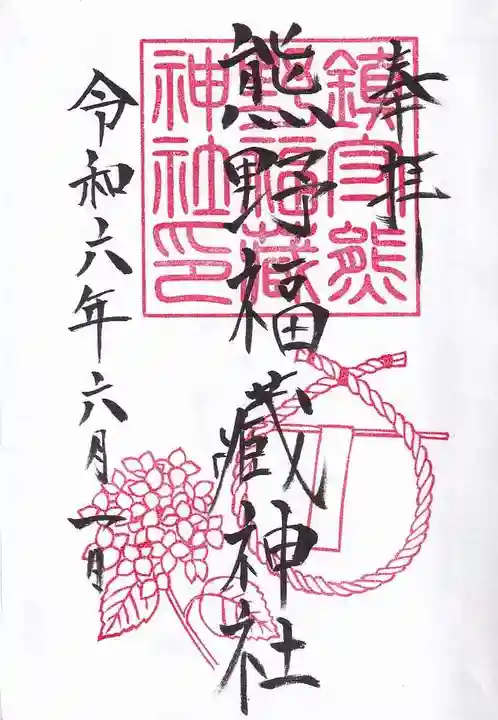 奉拝
熊野福蔵神社
令和六年六月一日
鎮守熊
野福蔵
神社印